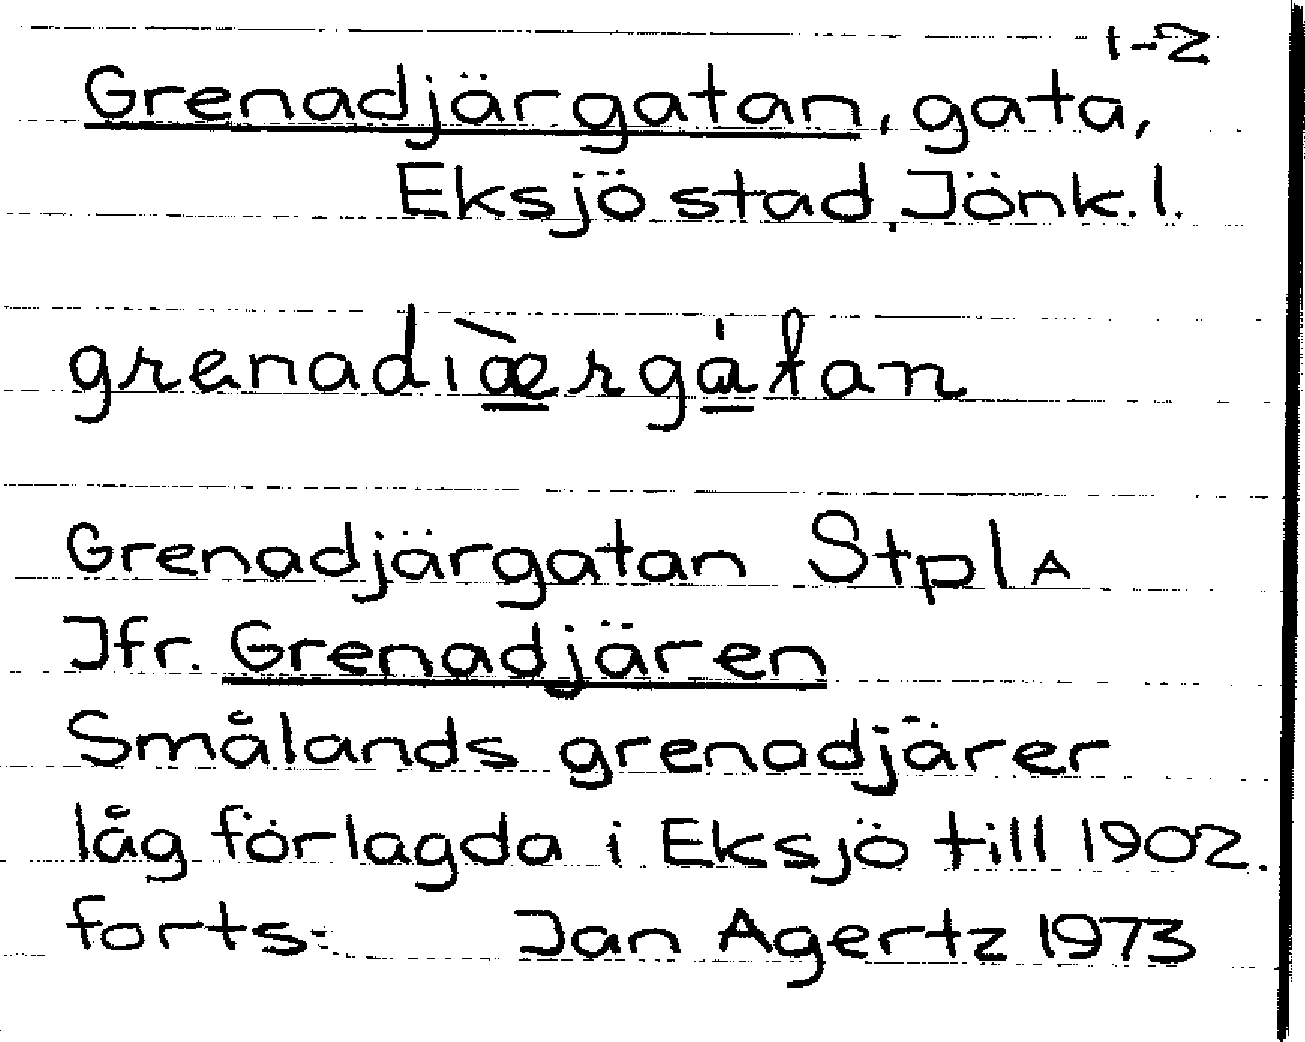 1-2
Grenadjärgatan, gata,
Eksjö stad, Jönk.l.
grenadıæ̀rgátan
Grenadjärgatan StplA
Jfr. Grenadjären
Smålands grenadjärer
låg förlagda i Eksjö till 1902.
forts. Jan Agertz 1973